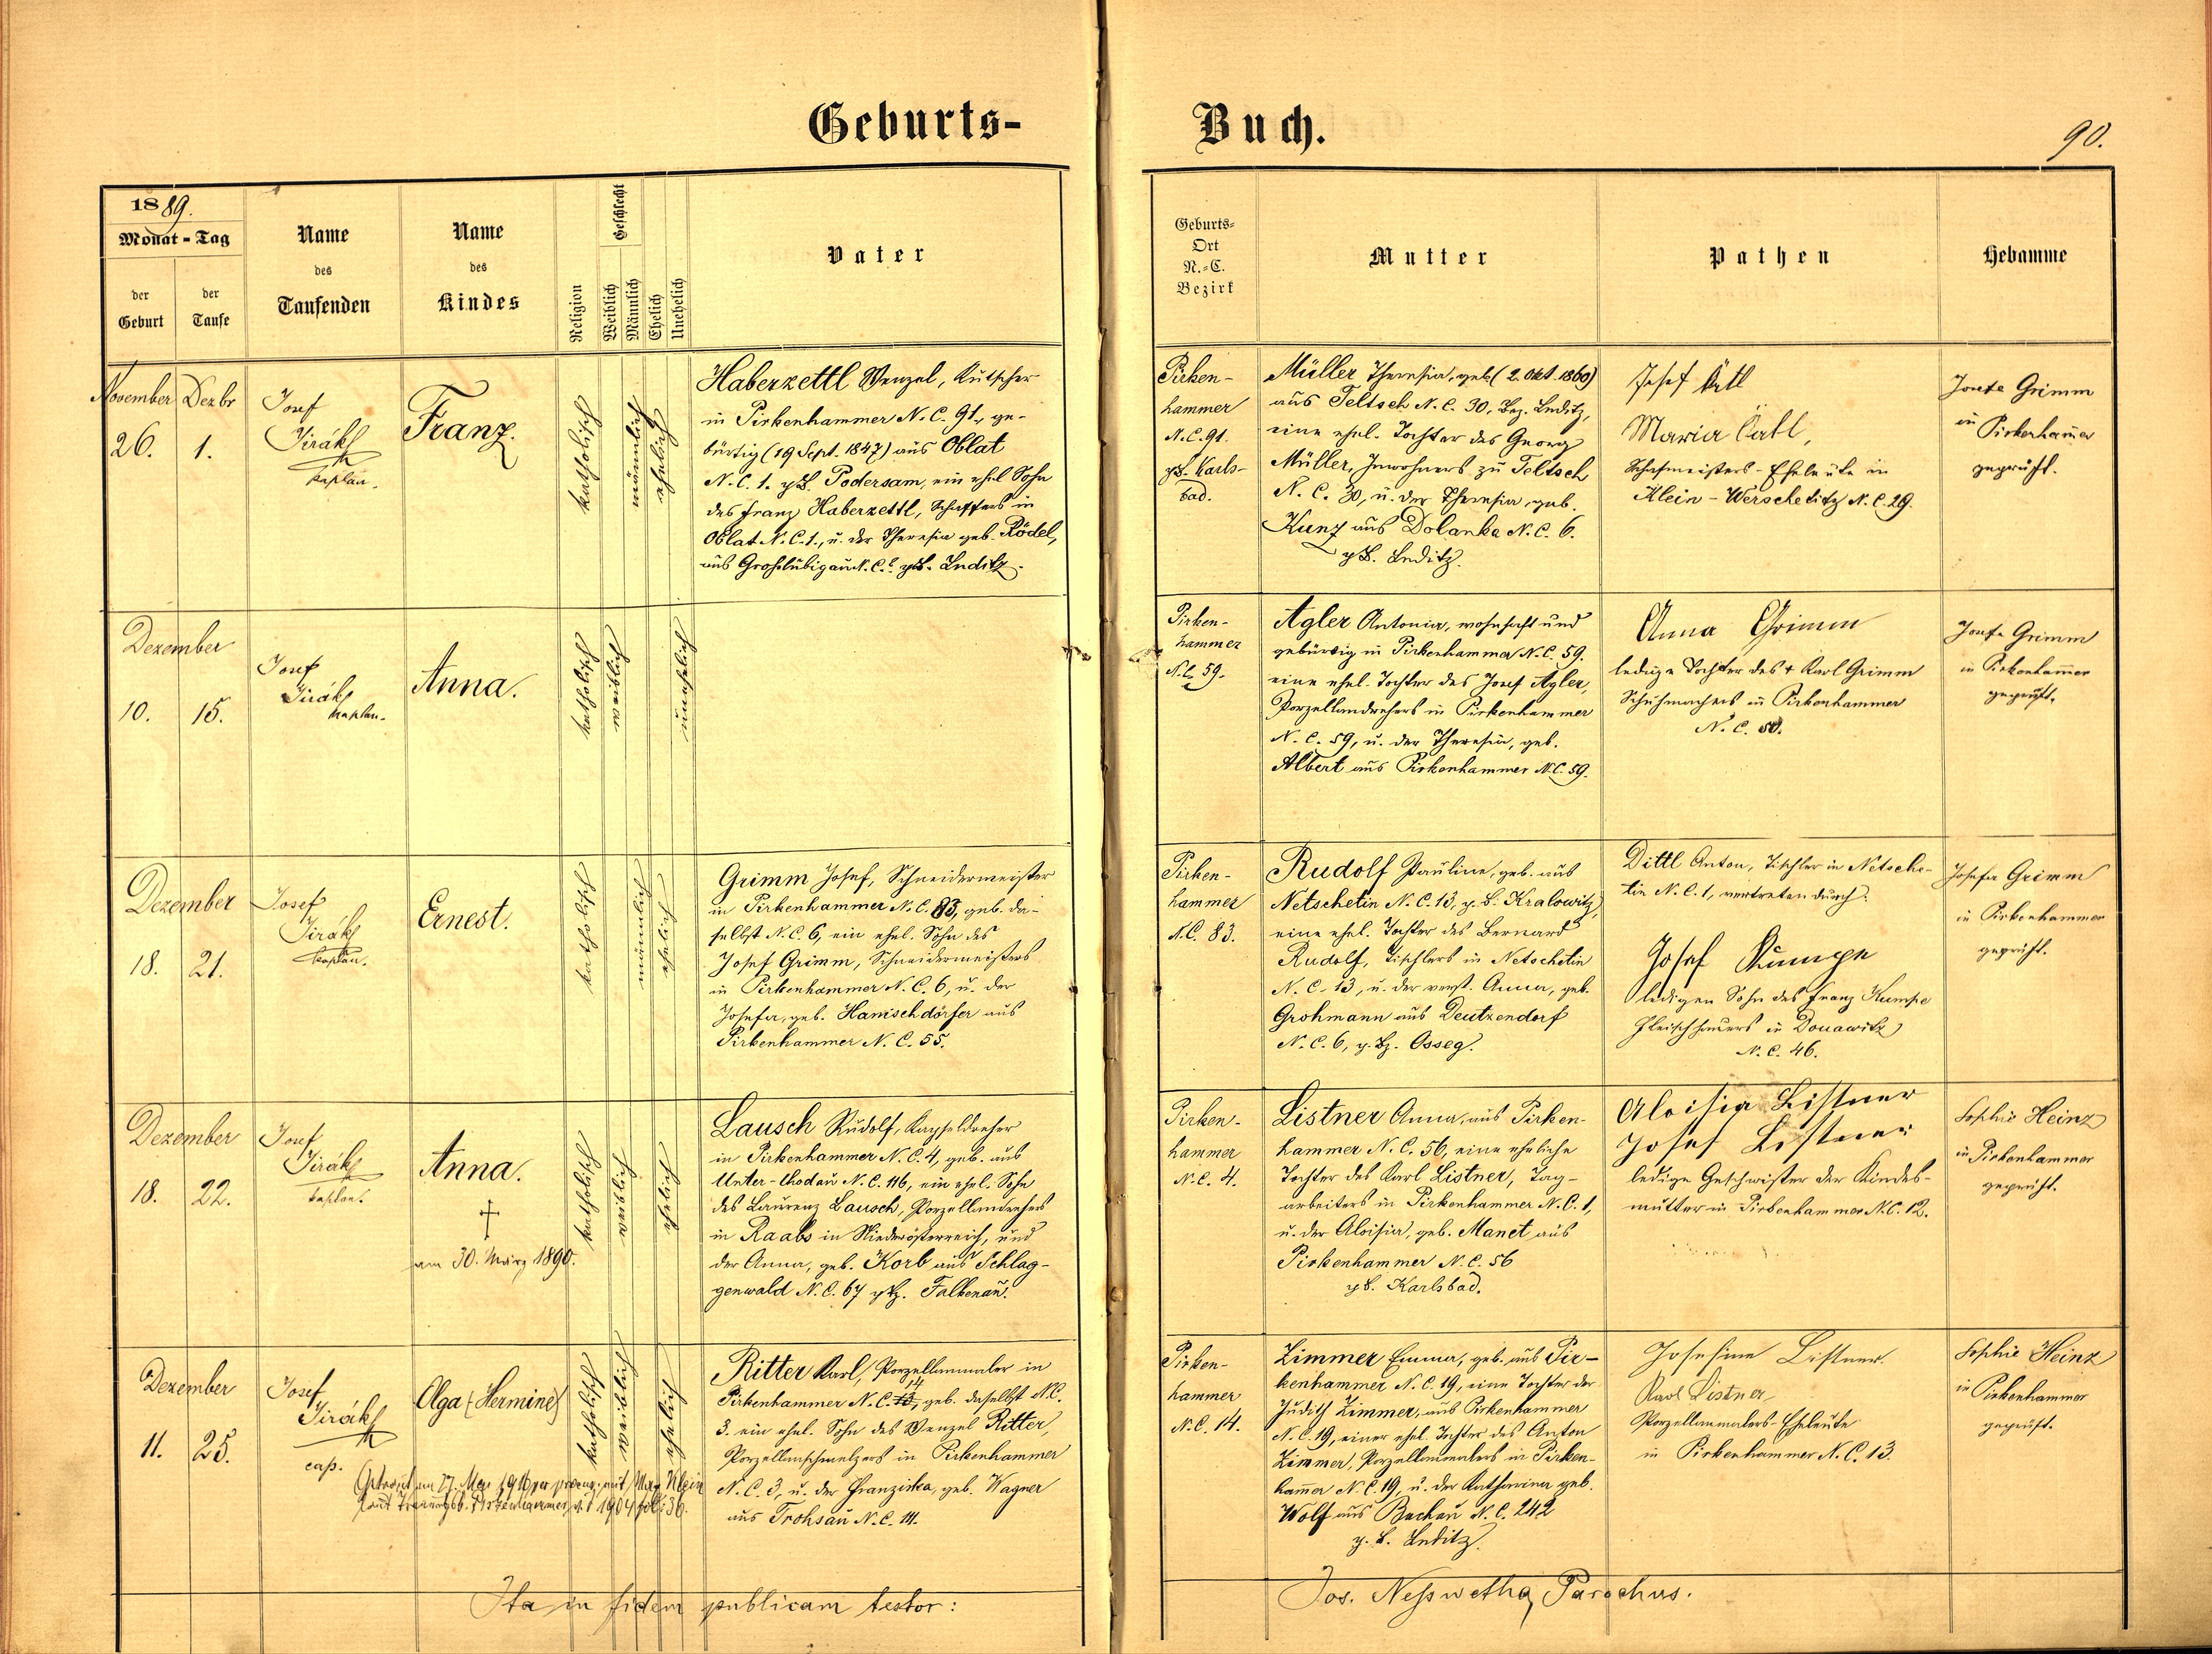 Geburts-
Buch.
90.
1889.
Monat - Tag
der
Geburt
der
Taufe
Name
des
Taufenden
Name
des
Kindes
Religion
Geschlecht
Weiblich
Männlich
Ehelich
Unehelich
Vater
Geburts-
Ort
N.-C.
Bezirk
Mutter
Pathen
Hebamme
November
26.
Dezbr
1.
Josef
Jirák
Kaplan.
Franz.
katholisch
männlich
ehelich
Haberzettl Wenzel, Kutscher
in Pirkenhammer N. C. 91, ge-
bürtig (19 Sept. 1847) aus Oblat
N. C. 1. Podersam, ein ehel. Sohn
des Franz Haberzettl, Schaffers in
Oblat N. C. 1., u. der Theresia geb. Rödel,
aus Grosslubigau N. C. Luditz.
Pirken-
hammer
N. C. 91.
Karls-
bad.
Müller Theresia, geb. (2. Okt. 1860)
aus Teltsch N. C. 30, Bez. Luditz,
eine ehel. Tochter des Georg
Müller, Inwohners zu Teltsch
N. C. 30, u. der Theresia, geb.
Kunz aus Dolanka N. C. 6.
Luditz.
Josef
Maria
Schafmeisters-Eheleute in
Klein-Werscheditz N. C. 29.
Grimm
in
Pirkenhamer
geprüft.
Dezember
10.
15.
Josef
Jirák
Kaplan.
Anna.
katholisch
weiblich
unehelich
Pirken-
hammer
N. C. 59.
Agler Antonia, wohnhaft und
gebürtig in Pirkenhammer N. C. 59.
eine ehel. Tochter des Josef Agler,
Porzellandrehers in Pirkenhammer
N. C. 59, u. der Theresia, geb.
Albert aus Pirkenhammer N. C. 59.
Anna Grimm
ledige Tochter des † Karl Grimm
Schuhmachers in Pirkenhammer
N. C. 50.
Grimm
in Pirkenhammer
geprüft.
Dezember
18.
21.
Josef
Jirák
Kaplan.
Ernest.
katholisch
männlich
ehelich
Grimm Josef, Schneidermeister
in Pirkenhammer N. C. 83, geb. da-
selbst N. C. 6, ein ehel. Sohn des
Josef Grimm, Schneidermeisters
in Pirkenhammer N. C. 6, u. der
Josefa, geb. Hanischdörfer aus
Pirkenhammer N. C. 55.
Pirken-
hammer
N. C. 83.
Rudolf Pauline, geb. aus
Netschetin N. C. 13, g. B. Kralowitz,
eine ehel. Tochter des Bernard
Rudolf, Tischlers in Netschetin
N. C. 13, u. der verst. Anna, geb.
Grohmann aus Deutzendorf
N. C. 6, g. Bz. Osseg.
Dittl Anton, Tischler in Netsche-
tin N. C. 1, vertreten durch:
Josef Kumpe
ledigen Sohn des Franz Kumpe
Fleischhauers in Donawitz
N. C. 46.
Josefa Grimm
in Pirkenhammer
geprüft.
Dezember
18.
22.
Josef
Jirák
Kaplan.
Anna.
†
am 30. März 1890.
katholisch
weiblich
ehelich
Lausch Rudolf, Kapseldreher
in Pirkenhammer N. C. 4, geb. aus
Unter-Chodau N. C. 116, ein ehel. Sohn
des Laurenz Lausch, Porzellandrehers
in Raabs in Niederösterreich, und
der Anna, geb. Korb aus Schlag-
genwald N. C. 67 g. Bz. Falkenau.
Pirken-
hammer
N. C. 4.
Listner Anna, aus Pirken-
hammer N. C. 56, eine eheliche
Tochter des Karl Listner, Tag-
arbeiters in Pirkenhammer N. C. 1,
u. der Aloisia, geb. Manet aus
Pirkenhammer N. C. 56
g. B. Karlsbad.
Aloisia Listner
Josef Listner
ledige Geschwister der Kindes-
mutter in Pirkenhammer N. C. 12.
Sophie Heinz
in Pirkenhammer
geprüft.
Dezember
11.
25.
Josef
Jirák
cap.
Olga (Hermine)
katholisch
weiblich
ehelich
Getraut am 17. Mai mit Max Klein
laut Trauungsb. Pirkenhammer 1904 fol. 36.
Ritter Karl, Porzellanmaler in
Pirkenhammer N. C. 14, geb. daselbst N. C.
3. ein ehel. Sohn des Wenzel Ritter,
Porzellanschmelzers in Pirkenhammer
N. C. 3, u. der Franziska, geb. Wagner
aus Trohsau N. C. 14.
Pirken-
hammer
N. C. 14.
Zimmer Emma, geb. aus Pir-
kenhammer N. C. 19, eine Tochter der
Judith Zimmer, aus Pirkenhammer
N. C. 19, einer ehel. Tochter des Anton
Zimmer, Porzellanmalers in Pirken-
hamer N. C. 19, u. der Katharina geb.
Wolf aus Buckau N. C. 242
g. B. Luditz.
Josefine Listner.
Karl Listner
Porzellanmalers-Eheleute
in Pirkenhammer N. C. 13.
Sophie Heinz
in Pirkenhammer
geprüft.
Ita in fidem publicam testor:
Jos. Parochus.